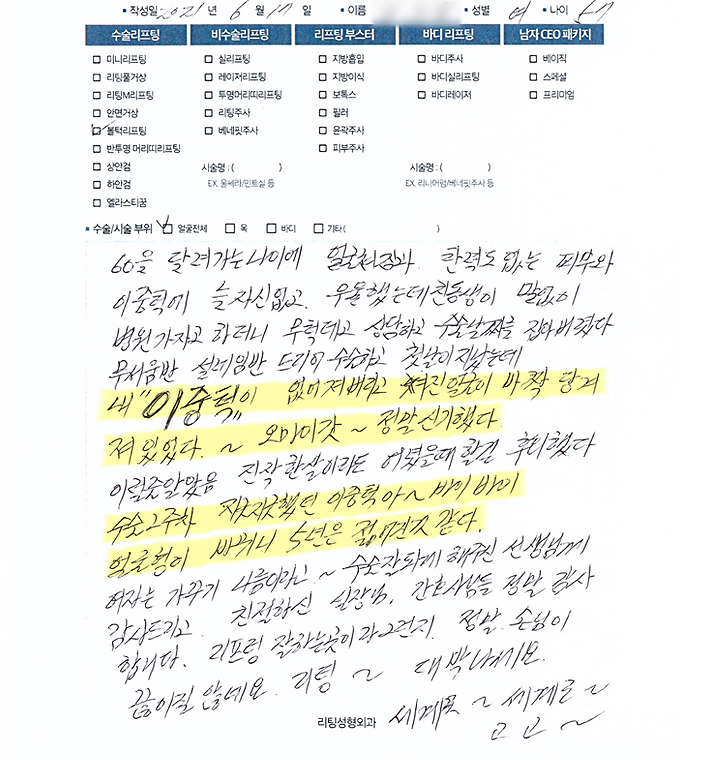 • 작성일 2021 년 6 월 17 일 • 이름 • 성별 여 • 나이 57
수술리프팅 비수술리프팅 리프팅 부스터 바디 리프팅 남자 CEO 패키지
□ 미니리프팅 □ 실리프팅 □ 지방흡입 □ 바디주사 □ 베이직
□ 리팅풀거상 □ 레이저리프팅 □ 지방이식 □ 바디실리프팅 □ 스페셜
□ 리팅M리프팅 □ 투명머리띠리프팅 □ 보톡스 □ 바디레이저 □ 프리미엄
□ 안면거상 □ 리팅주사 □ 필러
□ 볼턱리프팅 □ 베네핏주사 □ 윤곽주사
□ 반투명 머리띠리프팅 □ 피부주사
□ 상안검 시술명 : ( ) 시술명 : ( )
□ 하안검 EX. 울쎄라/민트실 등 EX. 리니어펌/베네핏주사 등
□ 엘라스티꿈
• 수술/시술 부위 □ 얼굴전체 □ 목 □ 바디 □ 기타 ( )
60을 달려가는 나이에 얼굴처짐과 탄력도 없는 피부와
이중턱에 늘 자신없고, 우울했는데 친동생이 말없이
병원가자고 하더니 무턱대고 상담하고 수술날짜를 잡아버렸다
무서움반 설레임반 드디어 수술하고 첫날이 지났는데
내 "이중턱"이 없어져버리고 쳐진얼굴이 바짝 당겨
져 있었다. ~ 오마이갓 ~ 정말신기했다.
이럴줄알았음 진작 한살이라도 어렸을때 할걸 후회했다
수술2주차 지긋지긋했던 이중턱아~ 바이 바이
얼굴형이 바뀌니 5년은 젊어진것 같다.
여자는 가꾸기 나름이라고 ~ 수술잘되게 해주신 선생님께
감사드리고 친절하신 실장님, 간호사님들 정말 감사
합니다. 리프팅 잘하는곳이라그런지 정말 손님이
끊이질 않네요. 리팅 ~ 대박나세요.
세계로 ~ 세계로 ~
고고 ~
리팅성형외과